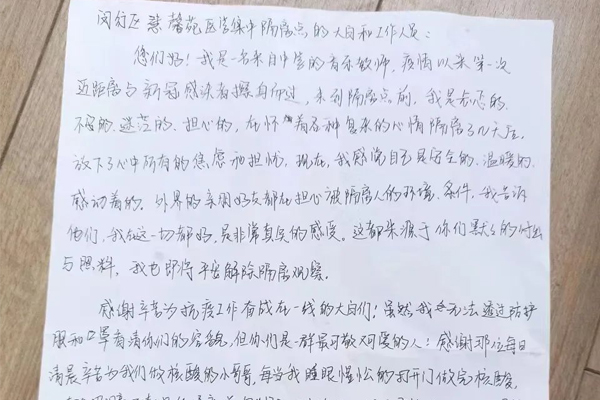 闵行区慧馨苑区实集中隔离点的大白和工作人员:
您们好!我是一名来自中学的音乐教师,疫情以来第一次
近距离与新冠感染者擦身而过,来到隔离点前,我是忐忑的、
不安的、迷茫的、担心的,在怀着各种复杂的心情隔离了几天后,
放下了心中所有的焦虑和担忧,现在,我感觉自己是安全的、温暖的、
感动着的。外界的亲朋好友都在担心被隔离人的环境、条件,我告诉
他们,我在这一切都好,是非常真实的感受。这都来源于你们默默的付出
与照料,我也即将平安解除隔离观察。
感谢辛苦为抗疫工作奋战在一线的大白们!虽然我无法透过防护
服和口罩看清你们的容貌,但你们是一群最可敬可爱的人:感谢那位每日
清晨辛苦为我们做核酸的小哥哥,每当我睡眼惺忪的打开门做完核酸,